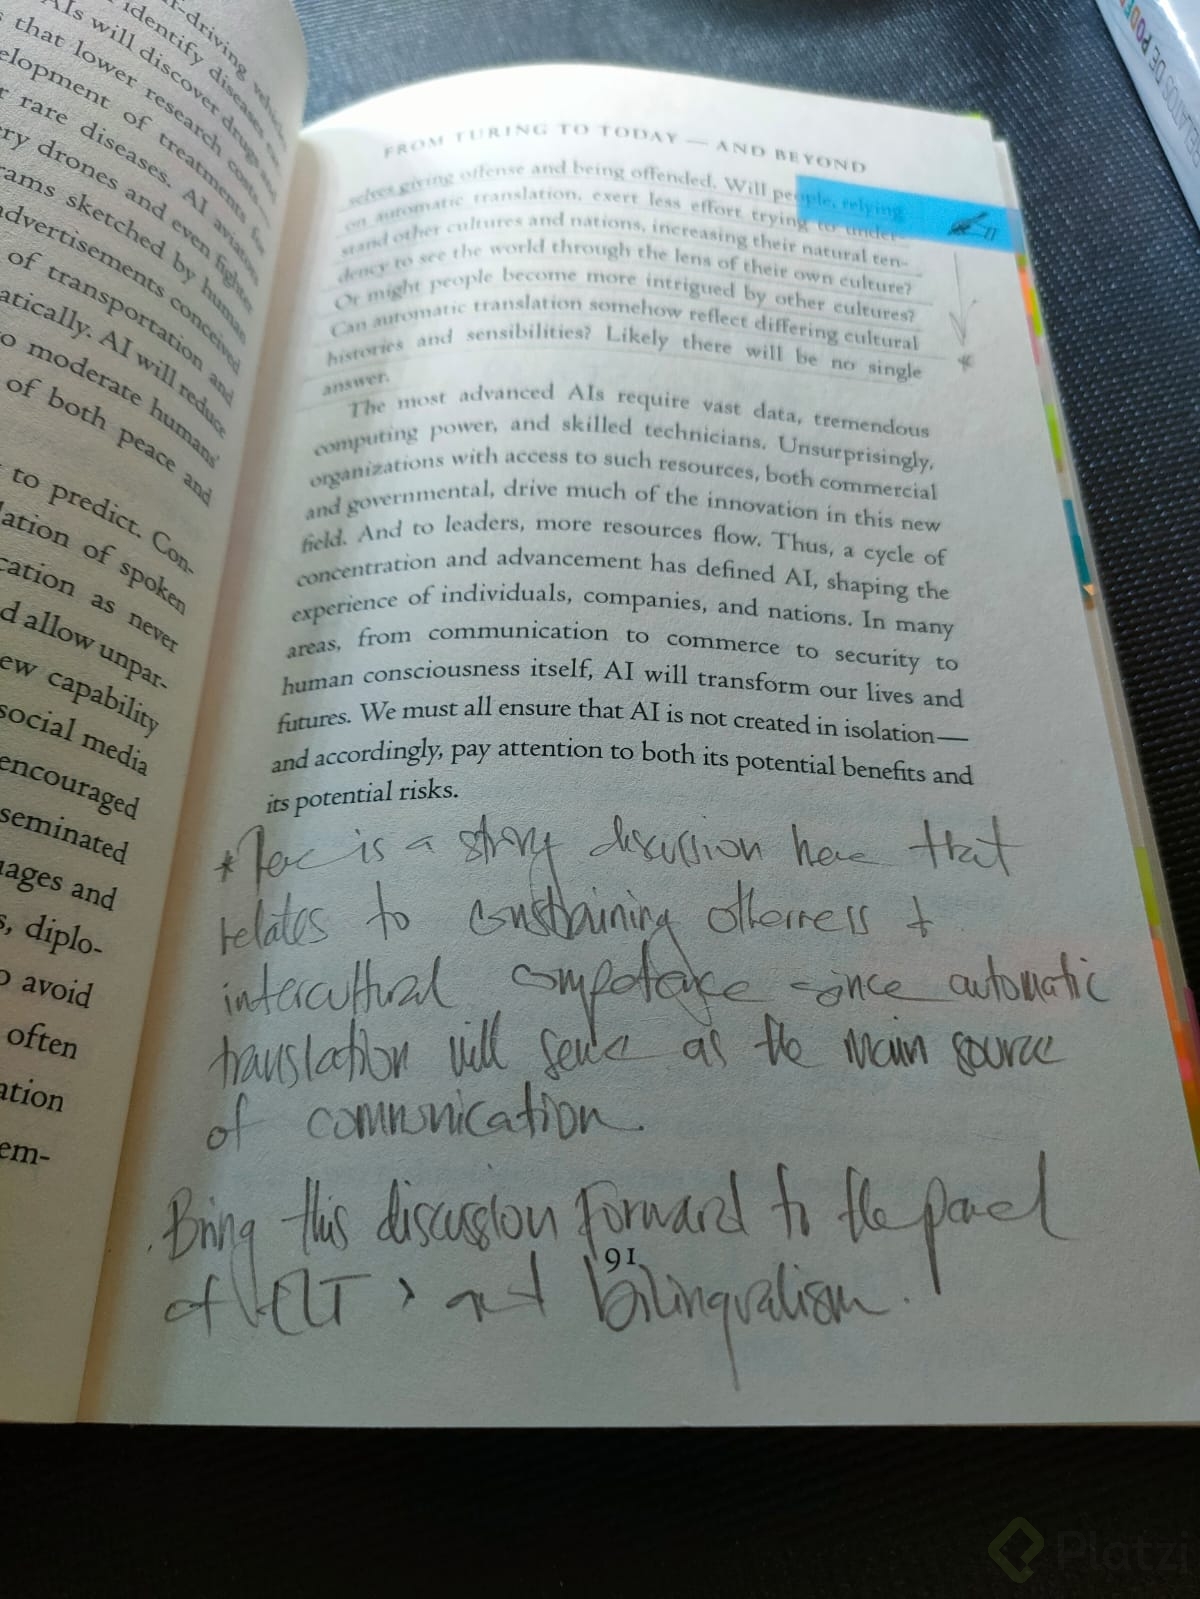 r-driving vehicles
identify diseases
AIs will discover drugs and
that lower research costs—
elopment of treatments for
r rare diseases. AI aviators
ery drones and even fighter
rams sketched by human
advertisements conceived
of transportation and
atically. AI will reduce
o moderate humans'
of both peace and
to predict. Con-
lation of spoken
cation as never
d allow unpar-
ew capability
social media
encouraged
seminated
uages and
s, diplo-
o avoid
often
ation
em-
FROM TURING TO TODAY — AND BEYOND
selves giving offense and being offended. Will people, relying
on automatic translation, exert less effort trying to under-
stand other cultures and nations, increasing their natural ten-
dency to see the world through the lens of their own culture?
Or might people become more intrigued by other cultures?
Can automatic translation somehow reflect differing cultural
histories and sensibilities? Likely there will be no single
answer.
The most advanced AIs require vast data, tremendous
computing power, and skilled technicians. Unsurprisingly,
organizations with access to such resources, both commercial
and governmental, drive much of the innovation in this new
field. And to leaders, more resources flow. Thus, a cycle of
concentration and advancement has defined AI, shaping the
experience of individuals, companies, and nations. In many
areas, from communication to commerce to security to
human consciousness itself, AI will transform our lives and
futures. We must all ensure that AI is not created in isolation—
and accordingly, pay attention to both its potential benefits and
its potential risks.
* is a strong discussion here that
relates to constraining otherness +
intercultural competence since automatic
translation will serve as the main source
of communication.
Bring this discussion forward to the panel
of ELT and bilingualism.
91
RELATOS DE PODER
Platzi